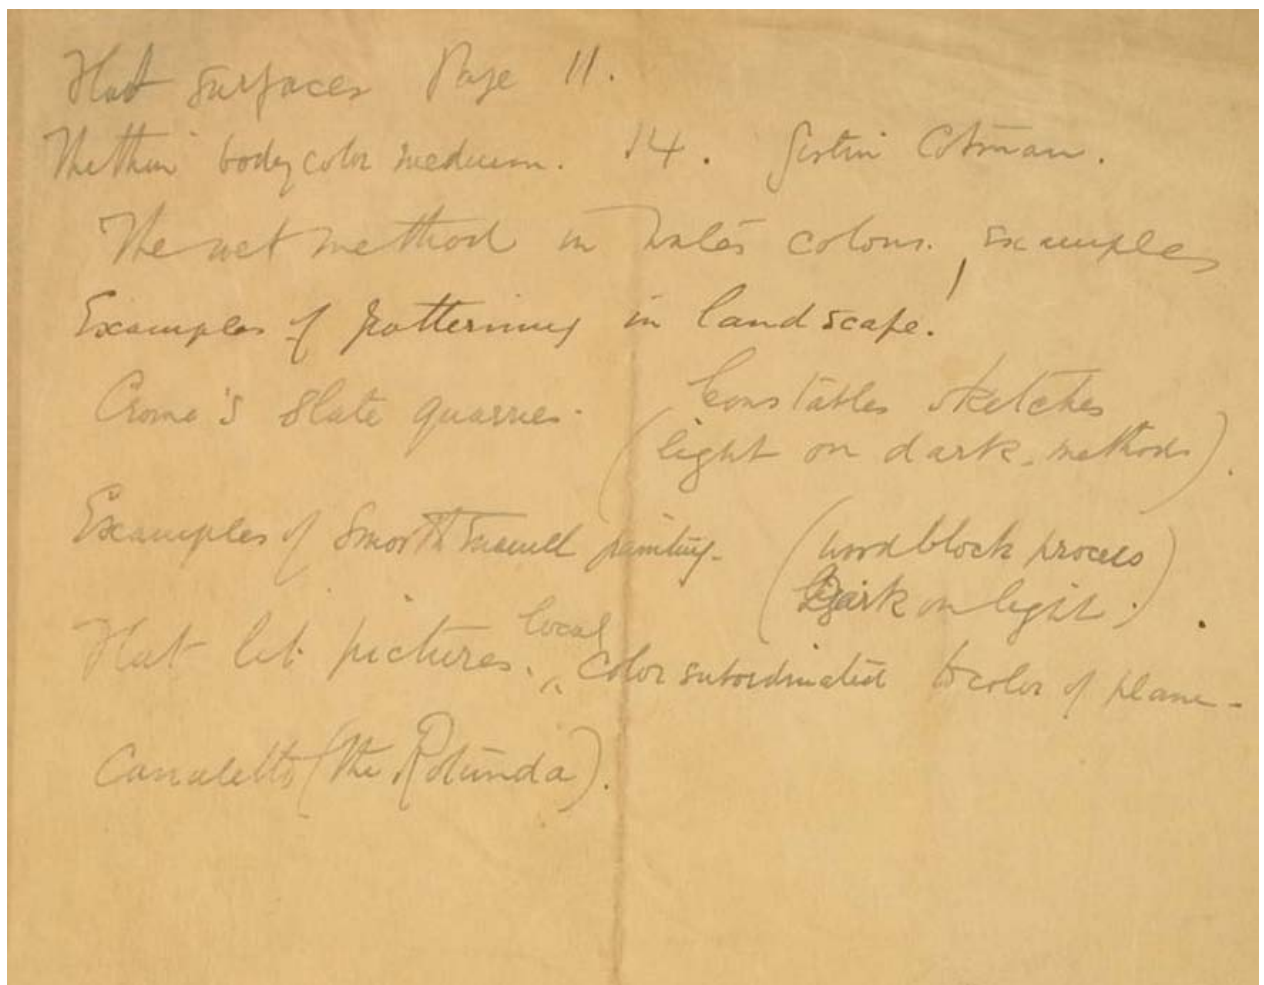 Flat surfaces Page 11.
The thin body color medium. 14. Girtin Cotman.
The wet method in water colour, examples
Examples of patterning in landscape.
Crome's slate quarries. Constables sketches
(light on dark methods).
Examples of smooth enamell painting. (wood block process)
(Dark on light).
Flat lit pictures. local color subordinated to color of plane -
Canaletto (the Rotunda).